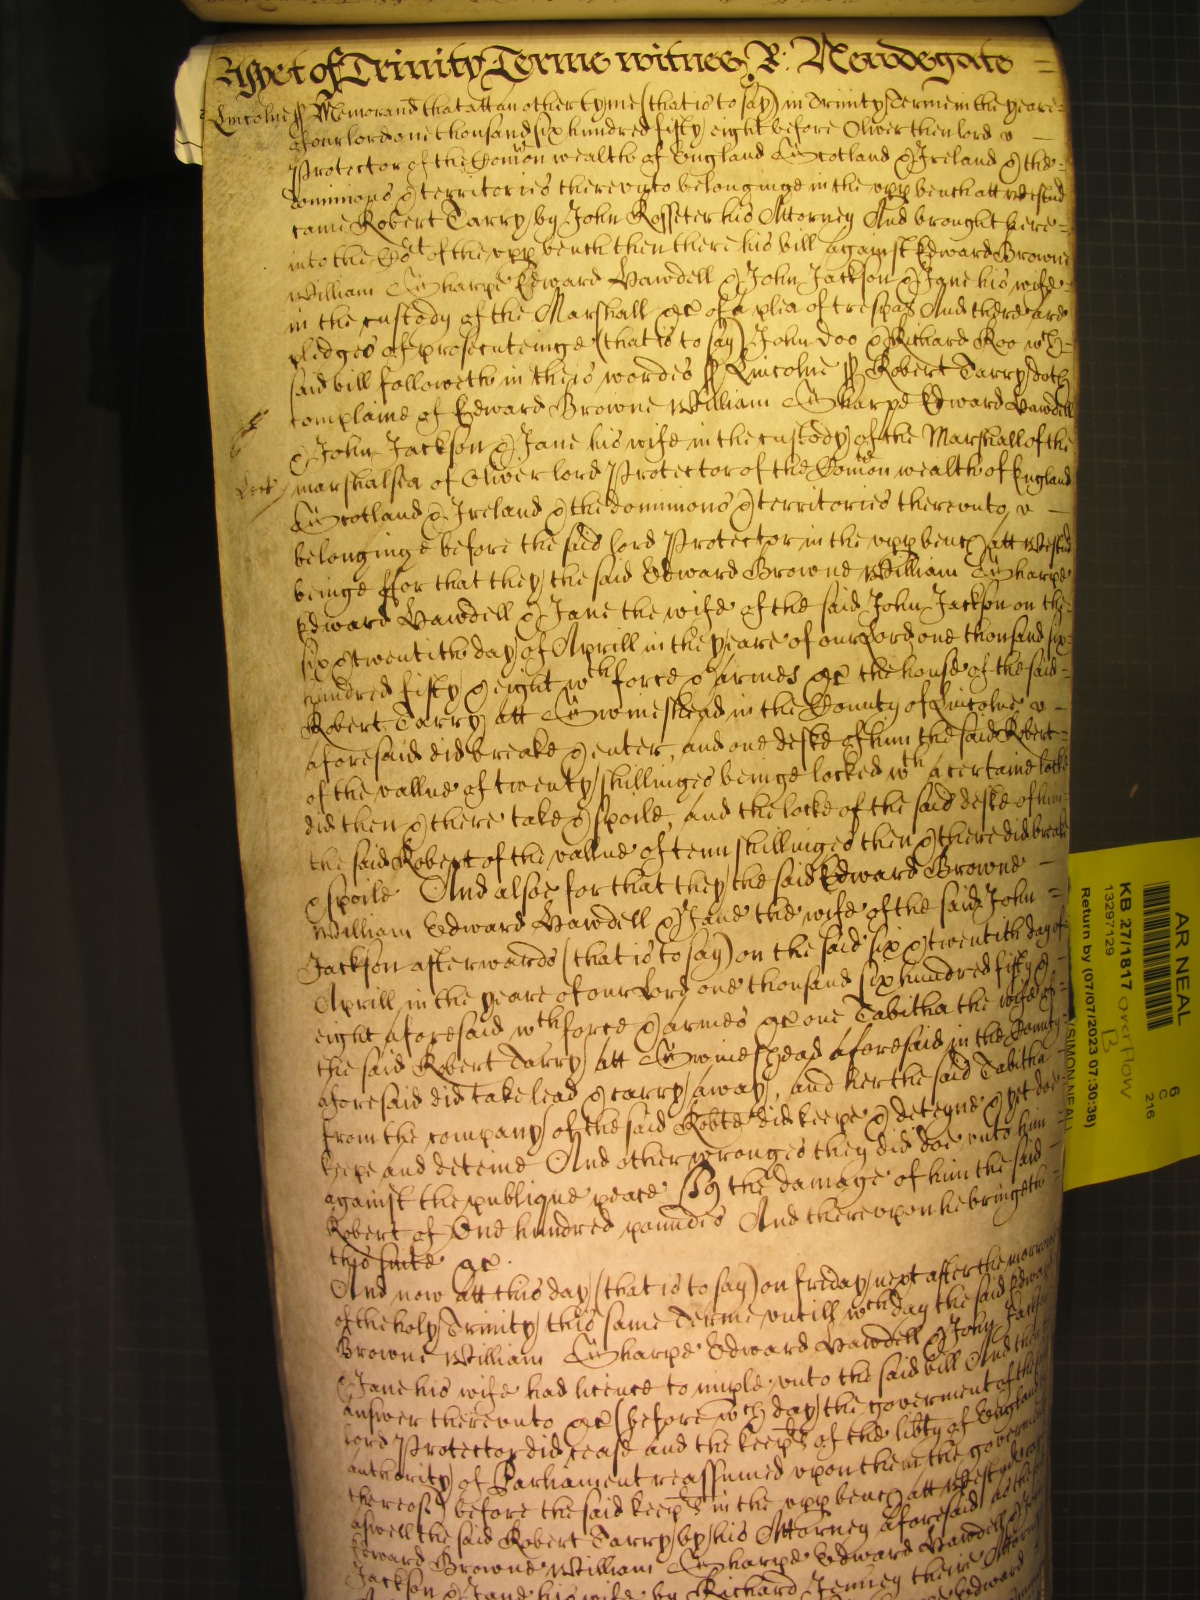 As yet of Trinity Terme witnes R: Newdegate
Lincolne ss Memorand that att an other tyme (that is to say) in Trinity Terme in the yeare
of our lord one thousand six hundred fifty eight before Oliver then lord
Protector of the Comon wealth of England Scotland & Ireland & the
dominions & territories therevnto belonginge in the vpp bench att Westm
came Robert Tarry by John Rosseter his Attorney And brought here
into the Cot of the vpp bench then there his bill against Edward Browne
William Sharpe Edward Hawdell & John Jackson & Jane his wife
in the custody of the Marshall &c of a plea of trespas And there are
pledges of prosecuteinge (that is to say) John Doo & Richard Roo wch
said bill followeth in theis wordes ss Lincolne ss Robert Tarry doth
complaine of Edward Browne William Sharpe Edward Hawdell
& John Jackson & Jane his wife in the custody of the Marshall of the
marshalsea of Oliver lord Protector of the Comon wealth of England
Scotland & Ireland & the dominions & territories therevnto
belonginge before the said lord Protector in the vpp bench att Westm
beinge ffor that they the said Edward Browne William Sharpe
Edward Hawdell & Jane the wife of the said John Jackson on the
six & twentith day of Aprill in the yeare of our Lord one thousand six
hundred fifty & eight wth force & armes &c the house of the said
Robert Tarry att Swineshead in the County of Lincolne
aforesaid did breake & enter, and one deske of him the said Robert
of the vallue of twenty shillinges beinge locked wth a certaine locke
did then & there take & spoile, and the locke of the said deske of him
the said Robert of the vallue of tenn shillinges then & there did breake
& spoile And alsoe for that they the said Edward Browne
William Edward Hawdell & Jane the wife of the said John
Jackson afterwards (that is to say) on the said six & twentith day of
Aprill in the yeare of our Lord one thousand six hundred fifty &
eight aforesaid wth force & armes &c one Tabitha the wife of
the said Robert Tarry att Swineshead aforesaid in the County
aforesaid did take lead & carry away, and her the said Tabitha
from the company of the said Robte did keepe & deteyne & yet doe
keepe and deteine And other wronges they did doe vnto him
against the publique peace To the damage of him the said
Robert of One hundred poundes And therevpon he bringeth
this suite &c.
And now att this day (that is to say) on friday next after the morrow
of the holy Trinity this same Terme vntill wch day the said Edward
Browne William Sharpe Edward Hawdell & John Jackson
& Jane his wife had licence to imple vnto the said bill And then to
answer therevnto &c (before wch day the goverment of the
lord Protector did cease and the keeps of the libty of England
authority of Parliament reassumed vpon them the goverment
thereof) before the said keeps in the vpp bench att Westm
aswell the said Robert Tarry by his Attorney aforesaid as the
Edward Browne William Sharpe Edward Hawdell & John
Jackson & Jane his wife by Richard Jenney their Attorney
AR NEAL
6
C
216
KB 27/1817 overflow
13297129
B
Return by (07/07/2023 07:30:38)
(SIMON NEAL)